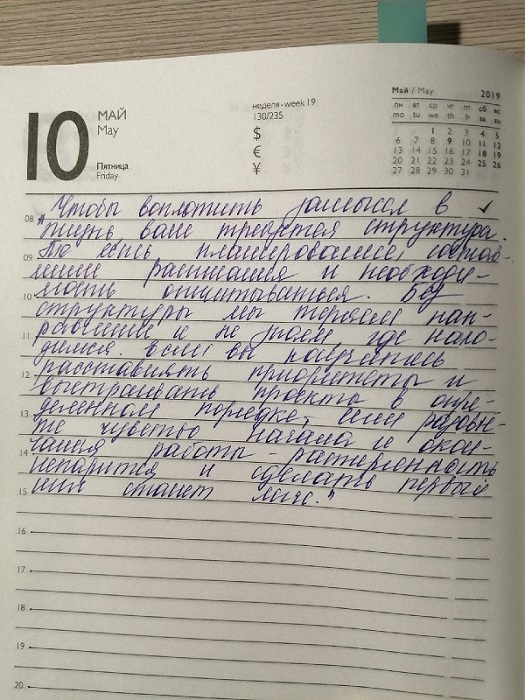 10
МАЙ
May
Пятница
Friday
неделя-week 19
130/235
$
€
¥
Май / May 2019
пн вт ср чт пт сб вс
mo tu we th fr sa su
1 2 3 4 5
6 7 8 9 10 11 12
13 14 15 16 17 18 19
20 21 22 23 24 25 26
27 28 29 30 31
Чтобы воплотить замысел в ✓
08 жизнь вам требуется структура.
То есть планирование, состав-
09 ление расписания и необходи-
мость отчитываться. Без
10 структуры мы теряем нап-
равление и не знаем где нахо-
11 димся. Если вы научитесь
расставлять приоритеты и
12 выстраивать проекты в опре-
деленном порядке, или развив-
13 те чувство начала и окон-
чания работы - растерянность
14 испарится и сделать первый
шаг станет легче."
15
16
17
18
19
20